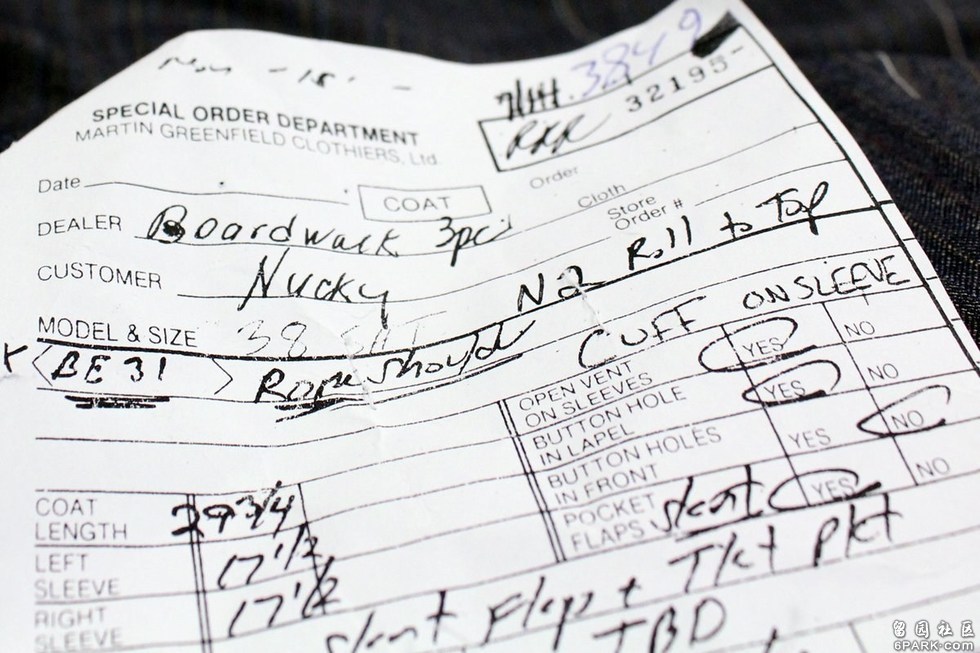 3849
32195-
SPECIAL ORDER DEPARTMENT
MARTIN GREENFIELD CLOTHIERS, Ltd.
Date
COAT
Order
Cloth
DEALER Boardwalk 3pc
Store
Order #
CUSTOMER Nucky
N2 Roll to Top
MODEL & SIZE 38
BE31 Rope Should
CUFF ON SLEEVE
OPEN VENT
ON SLEEVES YES NO
BUTTON HOLE
IN LAPEL YES NO
BUTTON HOLES
IN FRONT YES NO
POCKET
FLAPS slant YES NO
COAT
LENGTH 29 3/4
LEFT
SLEEVE 17 1/2
RIGHT
SLEEVE 17 1/2
slant Flaps + Tkt Pkt
TBD
留园社区
6PARK.com